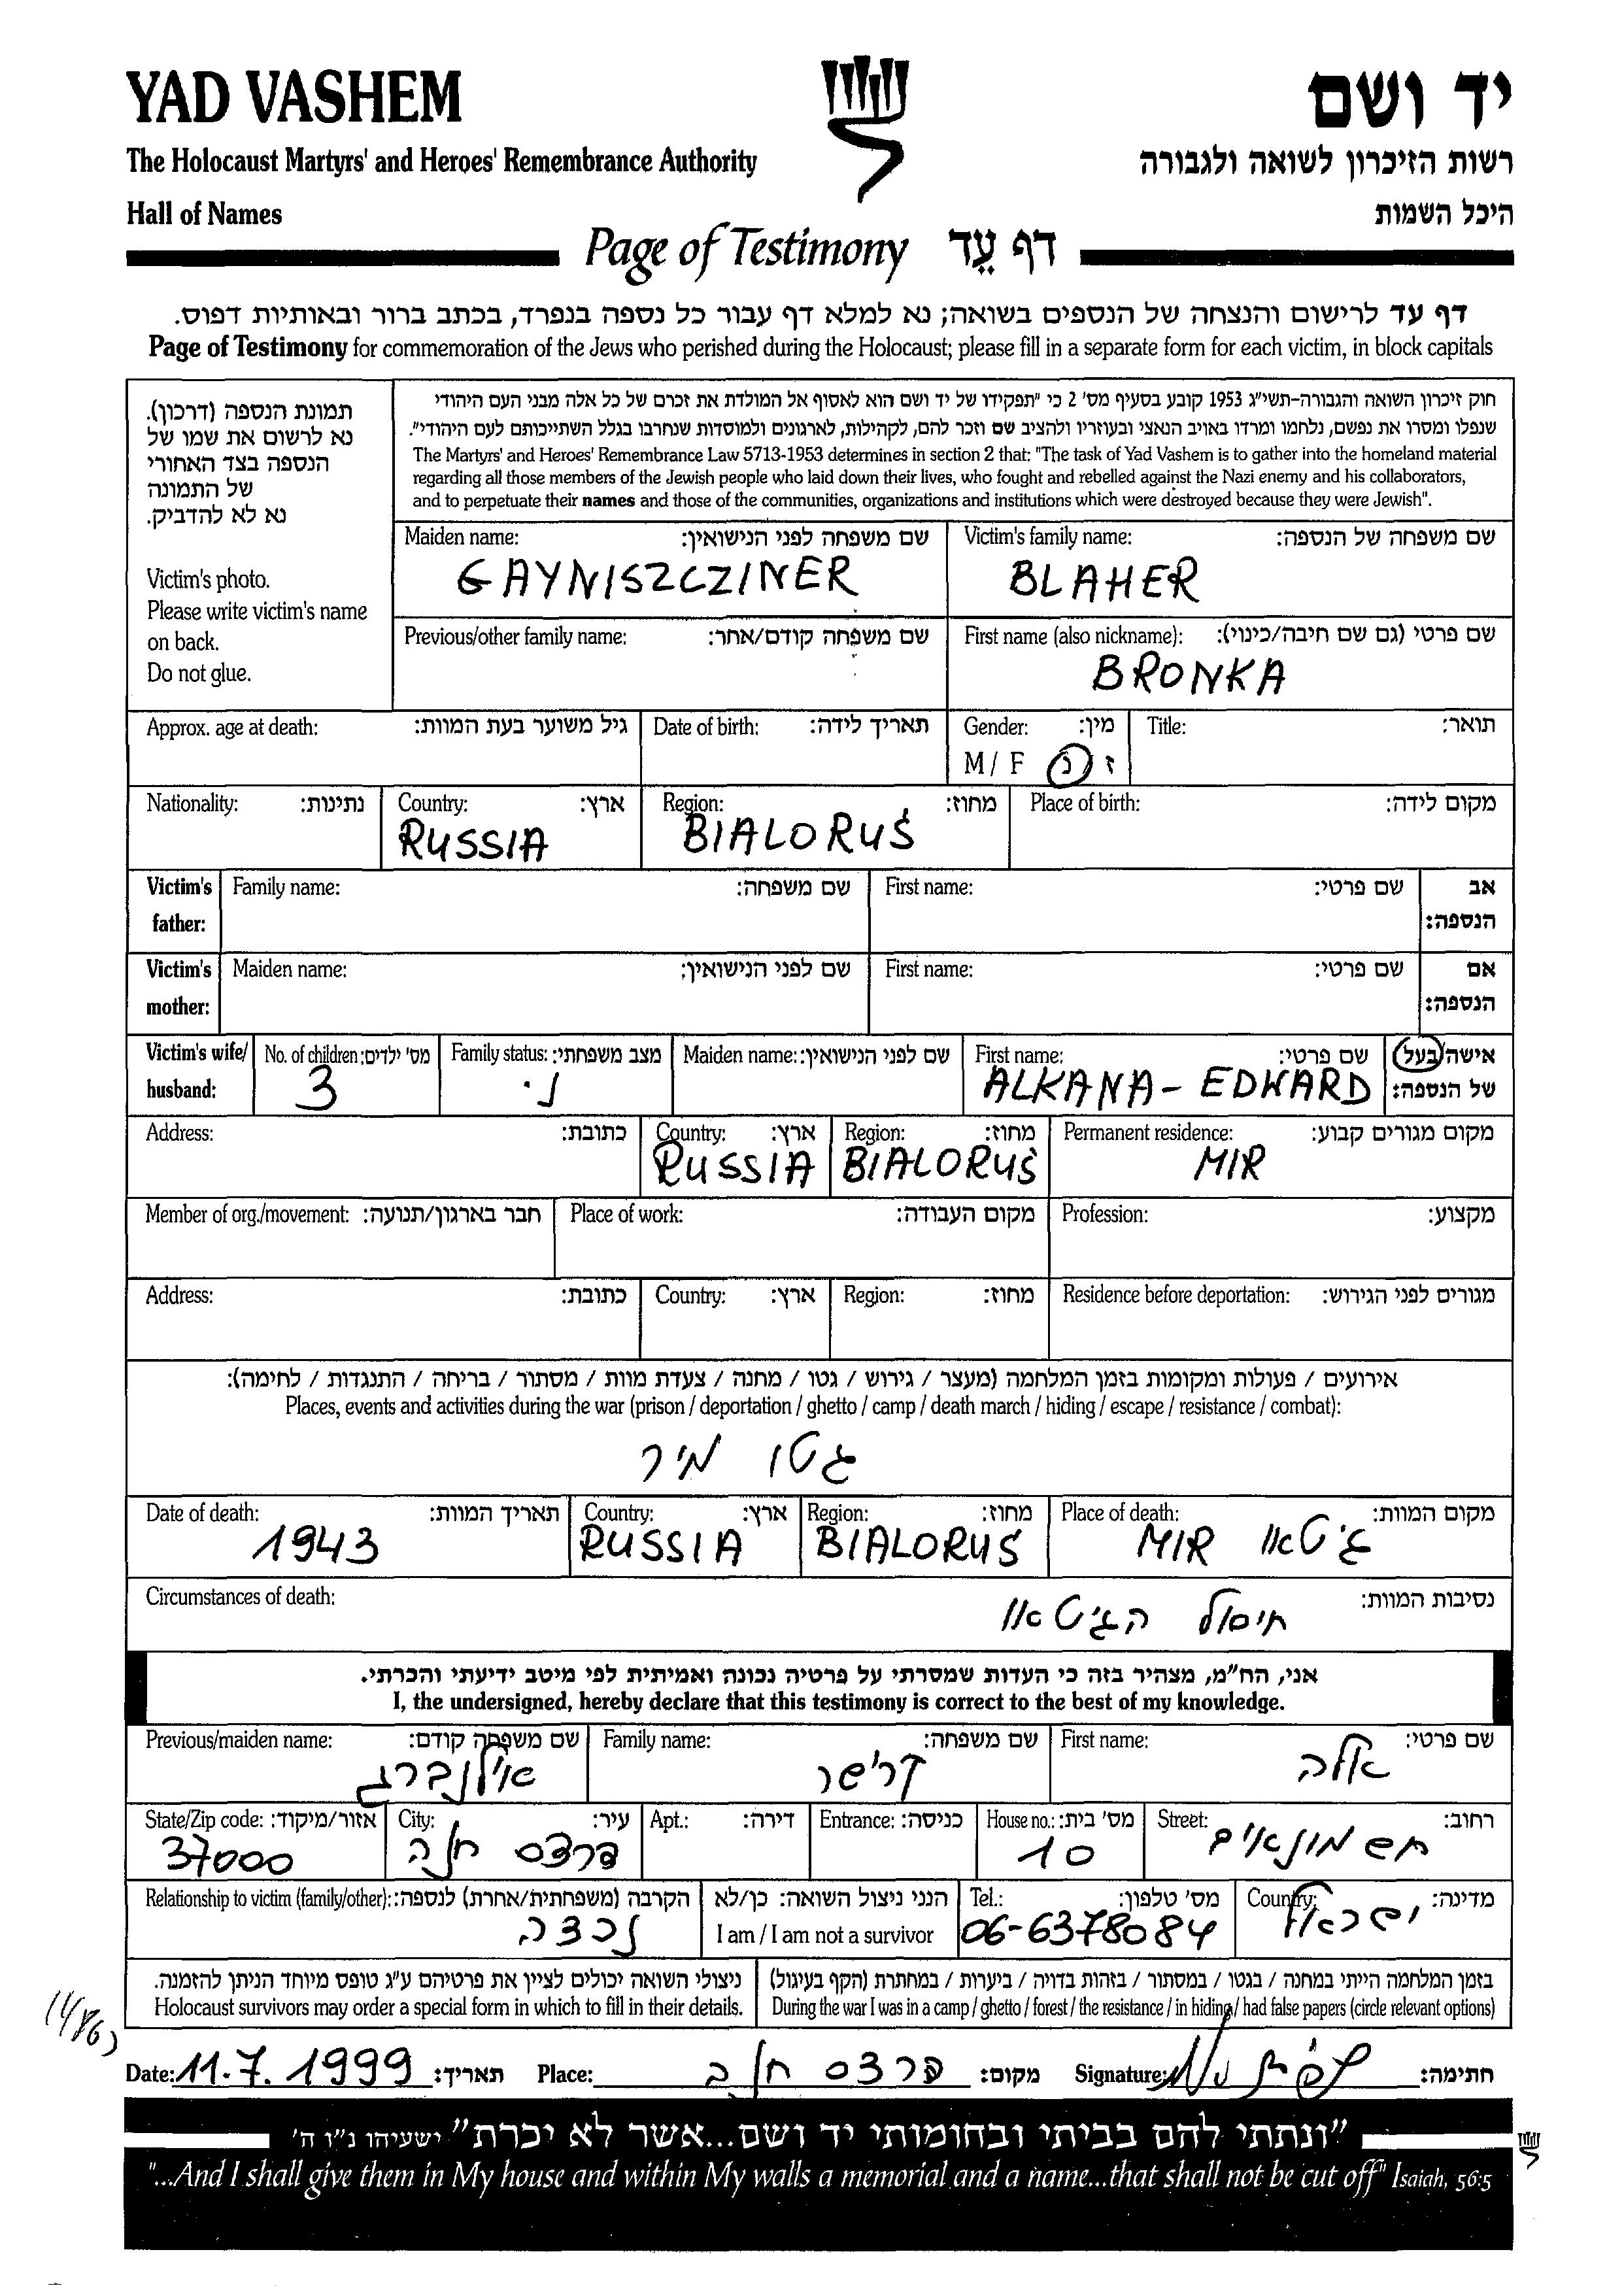 YAD VASHEM
יד ושם
The Holocaust Martyrs' and Heroes' Remembrance Authority
רשות הזיכרון לשואה ולגבורה
Hall of Names
היכל השמות
Page of Testimony דף עֵד
דף עד לרישום והנצחה של הנספים בשואה; נא למלא דף עבור כל נספה בנפרד, בכתב ברור ובאותיות דפוס.
Page of Testimony for commemoration of the Jews who perished during the Holocaust; please fill in a separate form for each victim, in block capitals
תמונת הנספה (דרכון).
נא לרשום את שמו של
הנספה בצד האחורי
של התמונה
נא לא להדביק.
Victim's photo.
Please write victim's name
on back.
Do not glue.
חוק זיכרון השואה והגבורה-תשי"ג 1953 קובע בסעיף מס' 2 כי "תפקידו של יד ושם הוא לאסוף אל המולדת את זכרם של כל אלה מבני העם היהודי
שנפלו ומסרו את נפשם, נלחמו ומרדו באויב הנאצי ובעוזריו ולהציב שם וזכר להם, לקהילות, לארגונים ולמוסדות שנחרבו בגלל השתייכותם לעם היהודי".
The Martyrs' and Heroes' Remembrance Law 5713-1953 determines in section 2 that: "The task of Yad Vashem is to gather into the homeland material
regarding all those members of the Jewish people who laid down their lives, who fought and rebelled against the Nazi enemy and his collaborators,
and to perpetuate their names and those of the communities, organizations and institutions which were destroyed because they were Jewish".
Maiden name: שם משפחה לפני הנישואין: Victim's family name: שם משפחה של הנספה:
GAYNISZCZINER BLAHER
Previous/other family name: שם משפחה קודם/אחר: First name (also nickname): שם פרטי (גם שם חיבה/כינוי):
BRONKA
Approx. age at death: גיל משוער בעת המוות: Date of birth: תאריך לידה: Gender: מין: Title: תואר:
M / F ז / נ
Nationality: נתינות: Country: ארץ: Region: מחוז: Place of birth: מקום לידה:
RUSSIA BIALORUŚ
Victim's father: Family name: שם משפחה: First name: שם פרטי: אב הנספה:
Victim's mother: Maiden name: שם לפני הנישואין: First name: שם פרטי: אם הנספה:
Victim's wife/ No. of children: מס' ילדים: Family status: מצב משפחתי: Maiden name: שם לפני הנישואין: First name: שם פרטי: אישה/בעל
husband: 3 נ. ALKANA - EDWARD של הנספה:
Address: כתובת: Country: ארץ: Region: מחוז: Permanent residence: מקום מגורים קבוע:
RUSSIA BIALORUŚ MIR
Member of org./movement: חבר בארגון/תנועה: Place of work: מקום העבודה: Profession: מקצוע:
Address: כתובת: Country: ארץ: Region: מחוז: Residence before deportation: מגורים לפני הגירוש:
אירועים / פעולות ומקומות בזמן המלחמה (מעצר / גירוש / גטו / מחנה / צעדת מוות / מסתור / בריחה / התנגדות / לחימה):
Places, events and activities during the war (prison / deportation / ghetto / camp / death march / hiding / escape / resistance / combat):
גטו מיר
Date of death: תאריך המוות: Country: ארץ: Region: מחוז: Place of death: מקום המוות:
1943 RUSSIA BIALORUŚ MIR גיטאו
Circumstances of death: נסיבות המוות:
חיסול הגיטאו
אני, הח"מ, מצהיר בזה כי העדות שמסרתי על פרטיה נכונה ואמיתית לפי מיטב ידיעתי והכרתי.
I, the undersigned, hereby declare that this testimony is correct to the best of my knowledge.
Previous/maiden name: שם משפחה קודם: Family name: שם משפחה: First name: שם פרטי:
אילנברג קרישר אלה
State/Zip code: אזור/מיקוד: City: עיר: Apt.: דירה: Entrance: כניסה: House no.: מס' בית: Street: רחוב:
37000 פרדס חנה 10 חשמונאים
Relationship to victim (family/other): הקרבה (משפחתית/אחרת) לנספה: הנני ניצול השואה: כן/לא Tel.: מס' טלפון: Country: מדינה:
נכדה I am / I am not a survivor 06-6378084 ישראל
ניצולי השואה יכולים לציין את פרטיהם ע"ג טופס מיוחד הניתן להזמנה.
Holocaust survivors may order a special form in which to fill in their details.
בזמן המלחמה הייתי במחנה / בגטו / במסתור / בזהות בדויה / ביערות / במחתרת (הקף בעיגול)
During the war I was in a camp / ghetto / forest / the resistance / in hiding / had false papers (circle relevant options)
Date: 11.7.1999 תאריך: Place: פרדס חנה מקום: Signature: חתימה:
"ונתתי להם בביתי ובחומותי יד ושם...אשר לא יכרת" ישעיהו נ"ו ה'
"...And I shall give them in My house and within My walls a memorial and a name...that shall not be cut off" Isaiah, 56:5